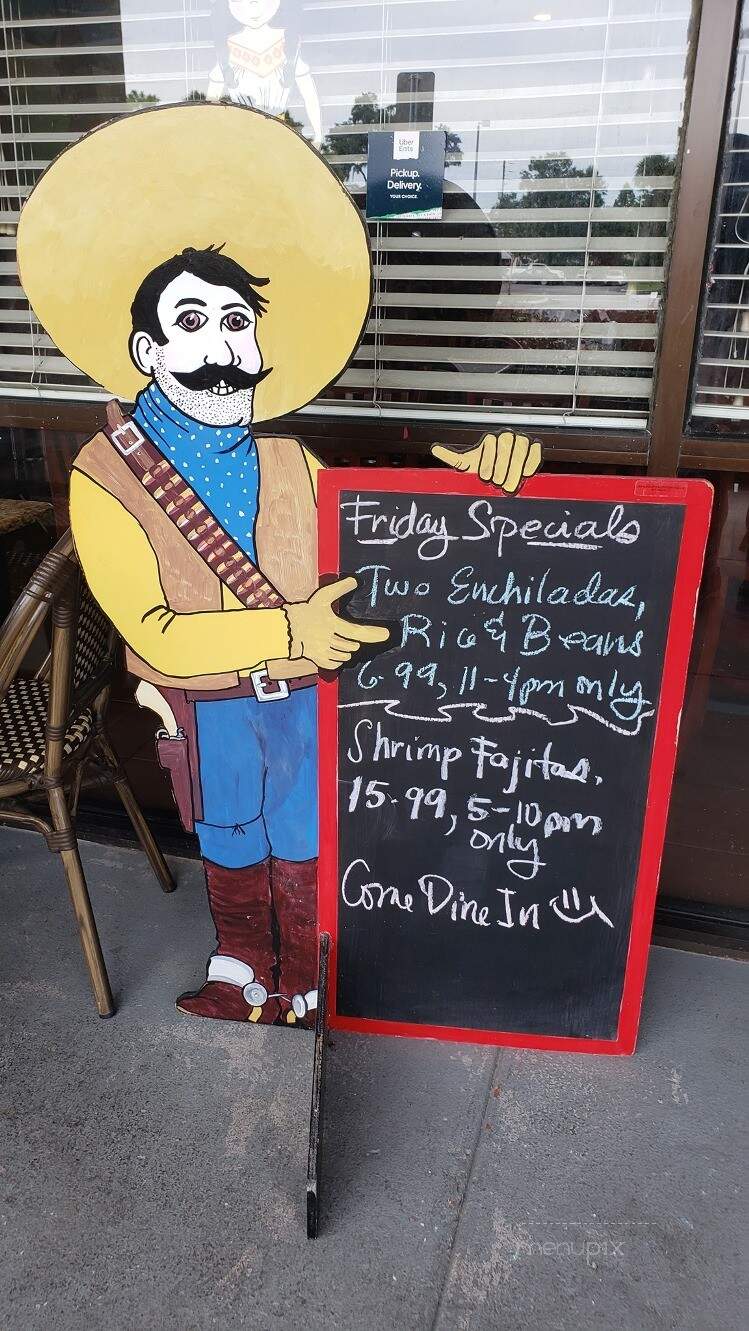 Uber
Eats
Pickup.
Delivery.
YOUR CHOICE
Friday Specials
Two Enchiladas,
Rice & Beans
6.99, 11-4pm only
Shrimp Fajitas.
15.99, 5-10pm
only
Come Dine In
menupix